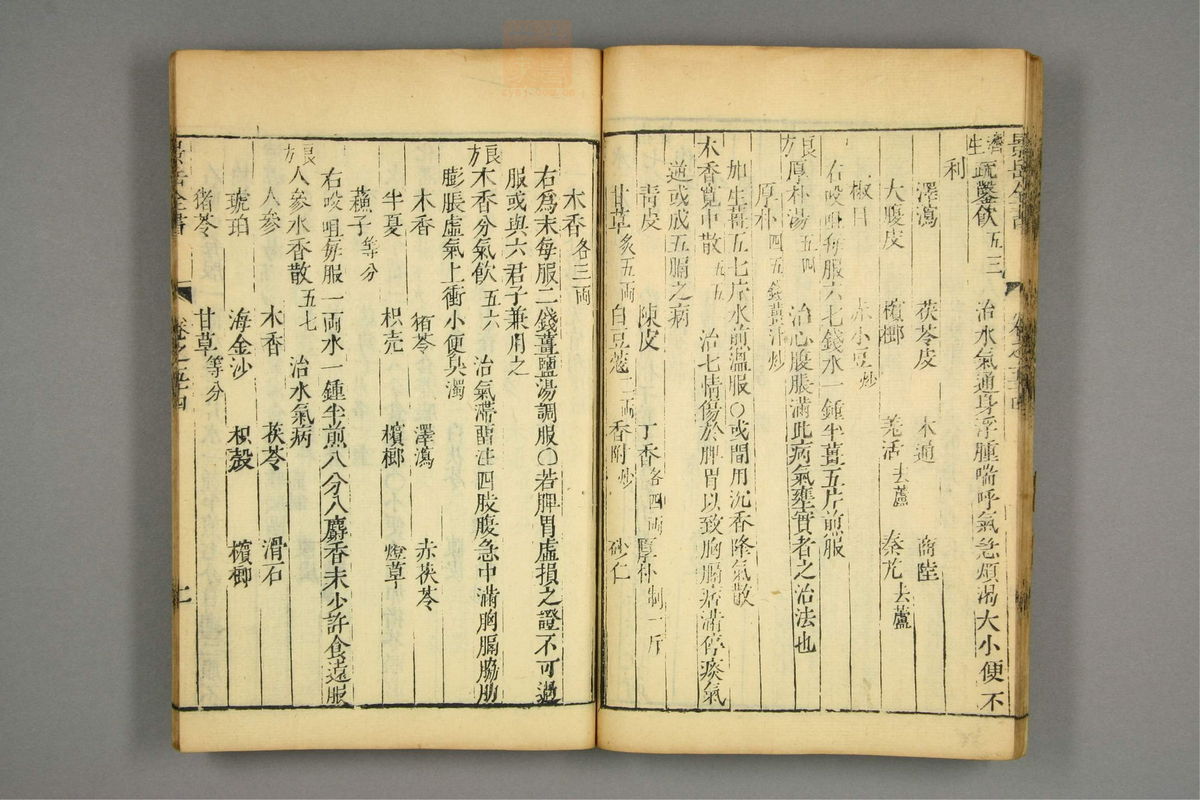 景岳全書
濟生疏鑿飲五三　治水氣通身浮腫喘呼氣急煩渴大小便不
利
澤瀉　茯苓皮　木通　商陸
大腹皮　檳榔　羗活去蘆　秦艽去蘆
椒目　赤小豆炒
右㕮咀每服六七錢水一鍾半薑五片煎服
良方厚朴湯五四　治心腹脹滿此病氣壅實者之治法也
厚朴
如生薑五七片水煎溫服○或間用沉香降氣散
木香寛中散五五　治七情傷於脾胃以致胸膈痞滿停痰氣
逆或成五膈之病
青皮　陳皮　丁香各四兩　厚朴制一斤
甘草炙五兩　白豆蔻二兩　香附炒　砂仁
木香各三兩
右為末每服二錢薑鹽湯調服○若脾胃虛損之證不可過
服或與六君子兼用之
良方木香分氣飲五六　治氣滯腫注四肢腹急中滿胸膈脇肋
膨脹虛氣上衝小便臭濁
木香　猪苓　澤瀉　赤茯苓
半夏　枳壳　檳榔　燈草
蘓子等分
右㕮咀每服一両水一鍾半煎八分入麝香末少許食遠服
良方人參木香散五七　治水氣病
人參　木香　茯苓　滑石
琥珀　海金沙　枳殼　檳榔
猪苓　甘草等分
景岳全書